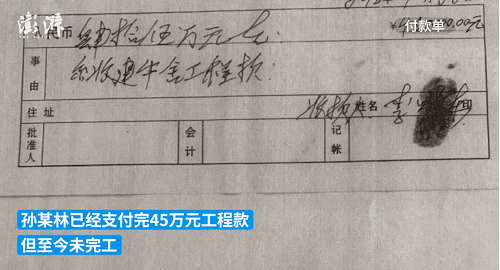 澎湃
付款单
人民币 肆拾伍万元
¥ 00.00元
事由
收建牛舍工程款
住址
收款人 姓名
批准人
会计
记帐
孙某林已经支付完45万元工程款
但至今未完工